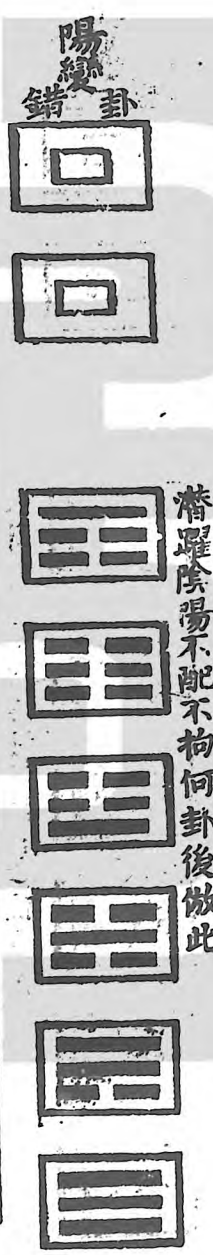 陽變
錯卦
潛躍陰陽不配不拘何卦後倣此